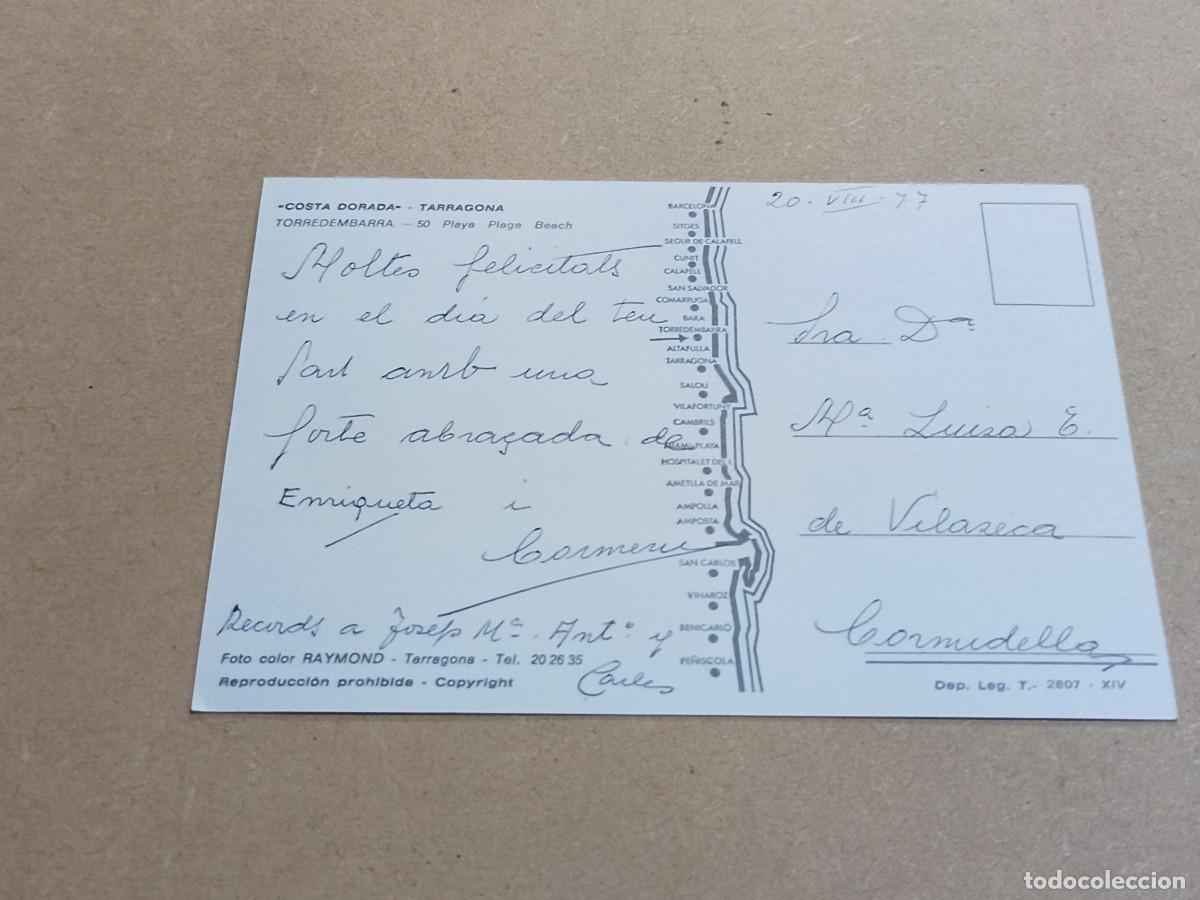 «COSTA DORADA» - TARRAGONA
TORREDEMBARRA — 50 Playa Plage Beach
Moltes felicitats
en el dia del teu
Sant amb una
forte abraçada de
Enriqueta i
Carmeru
Records a Josep Mª. Antº y
Carles
Foto color RAYMOND - Tarragona - Tel. 20 26 35
Reproducción prohibida - Copyright
BARCELONA
SITGES
SEGUR DE CALAFELL
CUNIT
CALAFELL
SAN SALVADOR
COMARRUGA
BARA
TORREDEMBARRA
ALTAFULLA
TARRAGONA
SALOU
VILAFORTUNY
CAMBRILS
MIAMI-PLAYA
HOSPITALET DEL I.
AMETLLA DE MAR
AMPOLLA
AMPOSTA
SAN CARLOS
VINAROZ
BENICARLÓ
PEÑISCOLA
20 - VIII - 77
Sra. Dª
Mª Luisa E.
de Vilaseca
Cornudella
Dep. Leg. T.- 2607 - XIV
todocoleccion